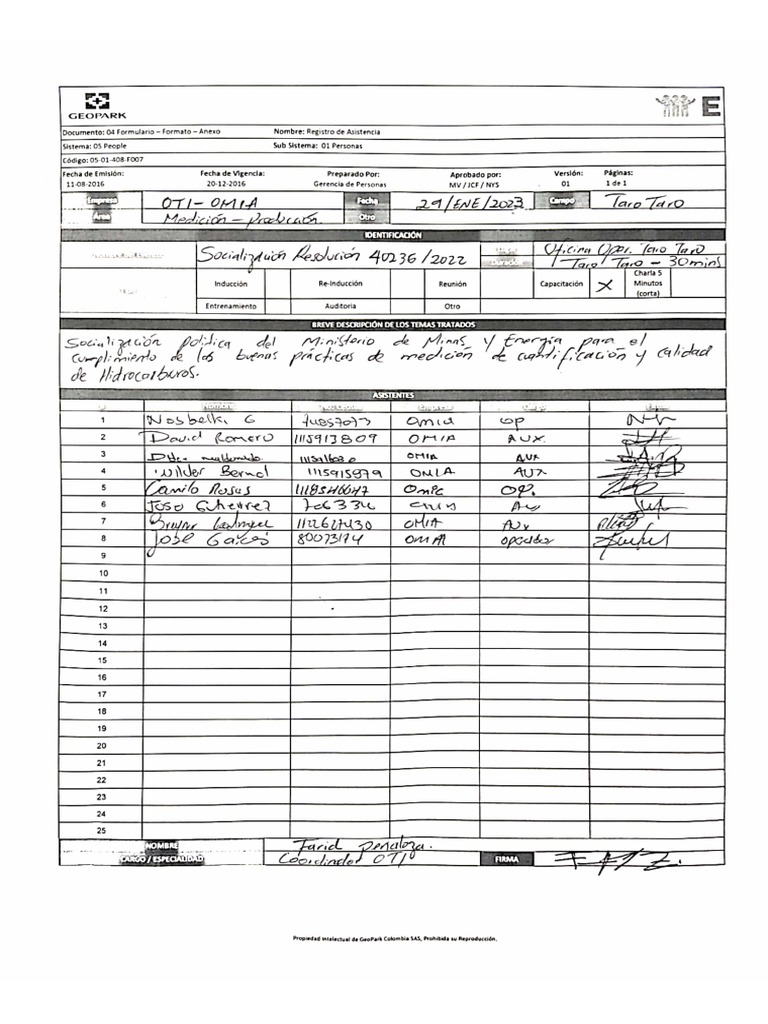 GEOPARK
E
Documento: 04 Formulario – Formato – Anexo Nombre: Registro de Asistencia
Sistema: 05 People Sub Sistema: 01 Personas
Código: 05-01-408-F007
Fecha de Emisión: Fecha de Vigencia: Preparado Por: Aprobado por: Versión: Páginas:
11-08-2016 20-12-2016 Gerencia de Personas MV / JCF / NYS 01 1 de 1
Empresa OTI-OMIA Fecha 29/ENE/2023 Campo Taro Taro
Área Medición - Producción Otro
IDENTIFICACIÓN
Socialización Resolución 40236/2022 Oficina Oper. Taro Taro
Taro Taro - 30 mins
Inducción Re-Inducción Reunión Capacitación X Charla 5 Minutos (corta)
Entrenamiento Auditoria Otro
BREVE DESCRIPCIÓN DE LOS TEMAS TRATADOS
Socialización política del Ministerio de Minas y Energía para el
cumplimiento de las buenas prácticas de medición de cuantificación y calidad
de Hidrocarburos.
ASISTENTES
1 Nosbelki G 74857073 omia op
2 David Romero 1115913809 OMIA AUX.
3 maldonado OMIA AUX
4 Wilder Bernal 1115915979 OMIA AUX
5 Camilo Rosas 1118546647 OP.
6 Jose Gutierrez 706334
7 1122627230 OMIA AUX
8 JOSE Garcés 80073174 OMIA operador
9
10
11
12
13
14
15
16
17
18
19
20
21
22
23
24
25
NOMBRE Farid Peñaloza.
CARGO / ESPECIALIDAD Coordinador OTI FIRMA
Propiedad Intelectual de GeoPark Colombia SAS, Prohibida su Reproducción.